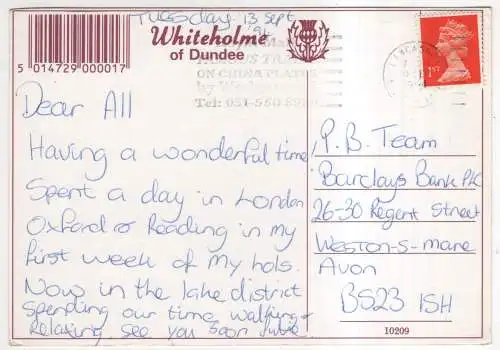 TUESDAY 13 Sept
Whiteholme
of Dundee
5 014729 000017
ON CHINA PLATES
Tel: 031-550 8
1ST
Dear All
Having a wonderful time
Spent a day in London
Oxford & Reading in my
first week of my hols.
Now in the lake district
Spending our time walking &
relaxing. See you soon Julie
P.B. Team
Barclays Bank Plc
26-30 Regent Street
Weston-S-Mare
Avon
BS23 1SH
10209